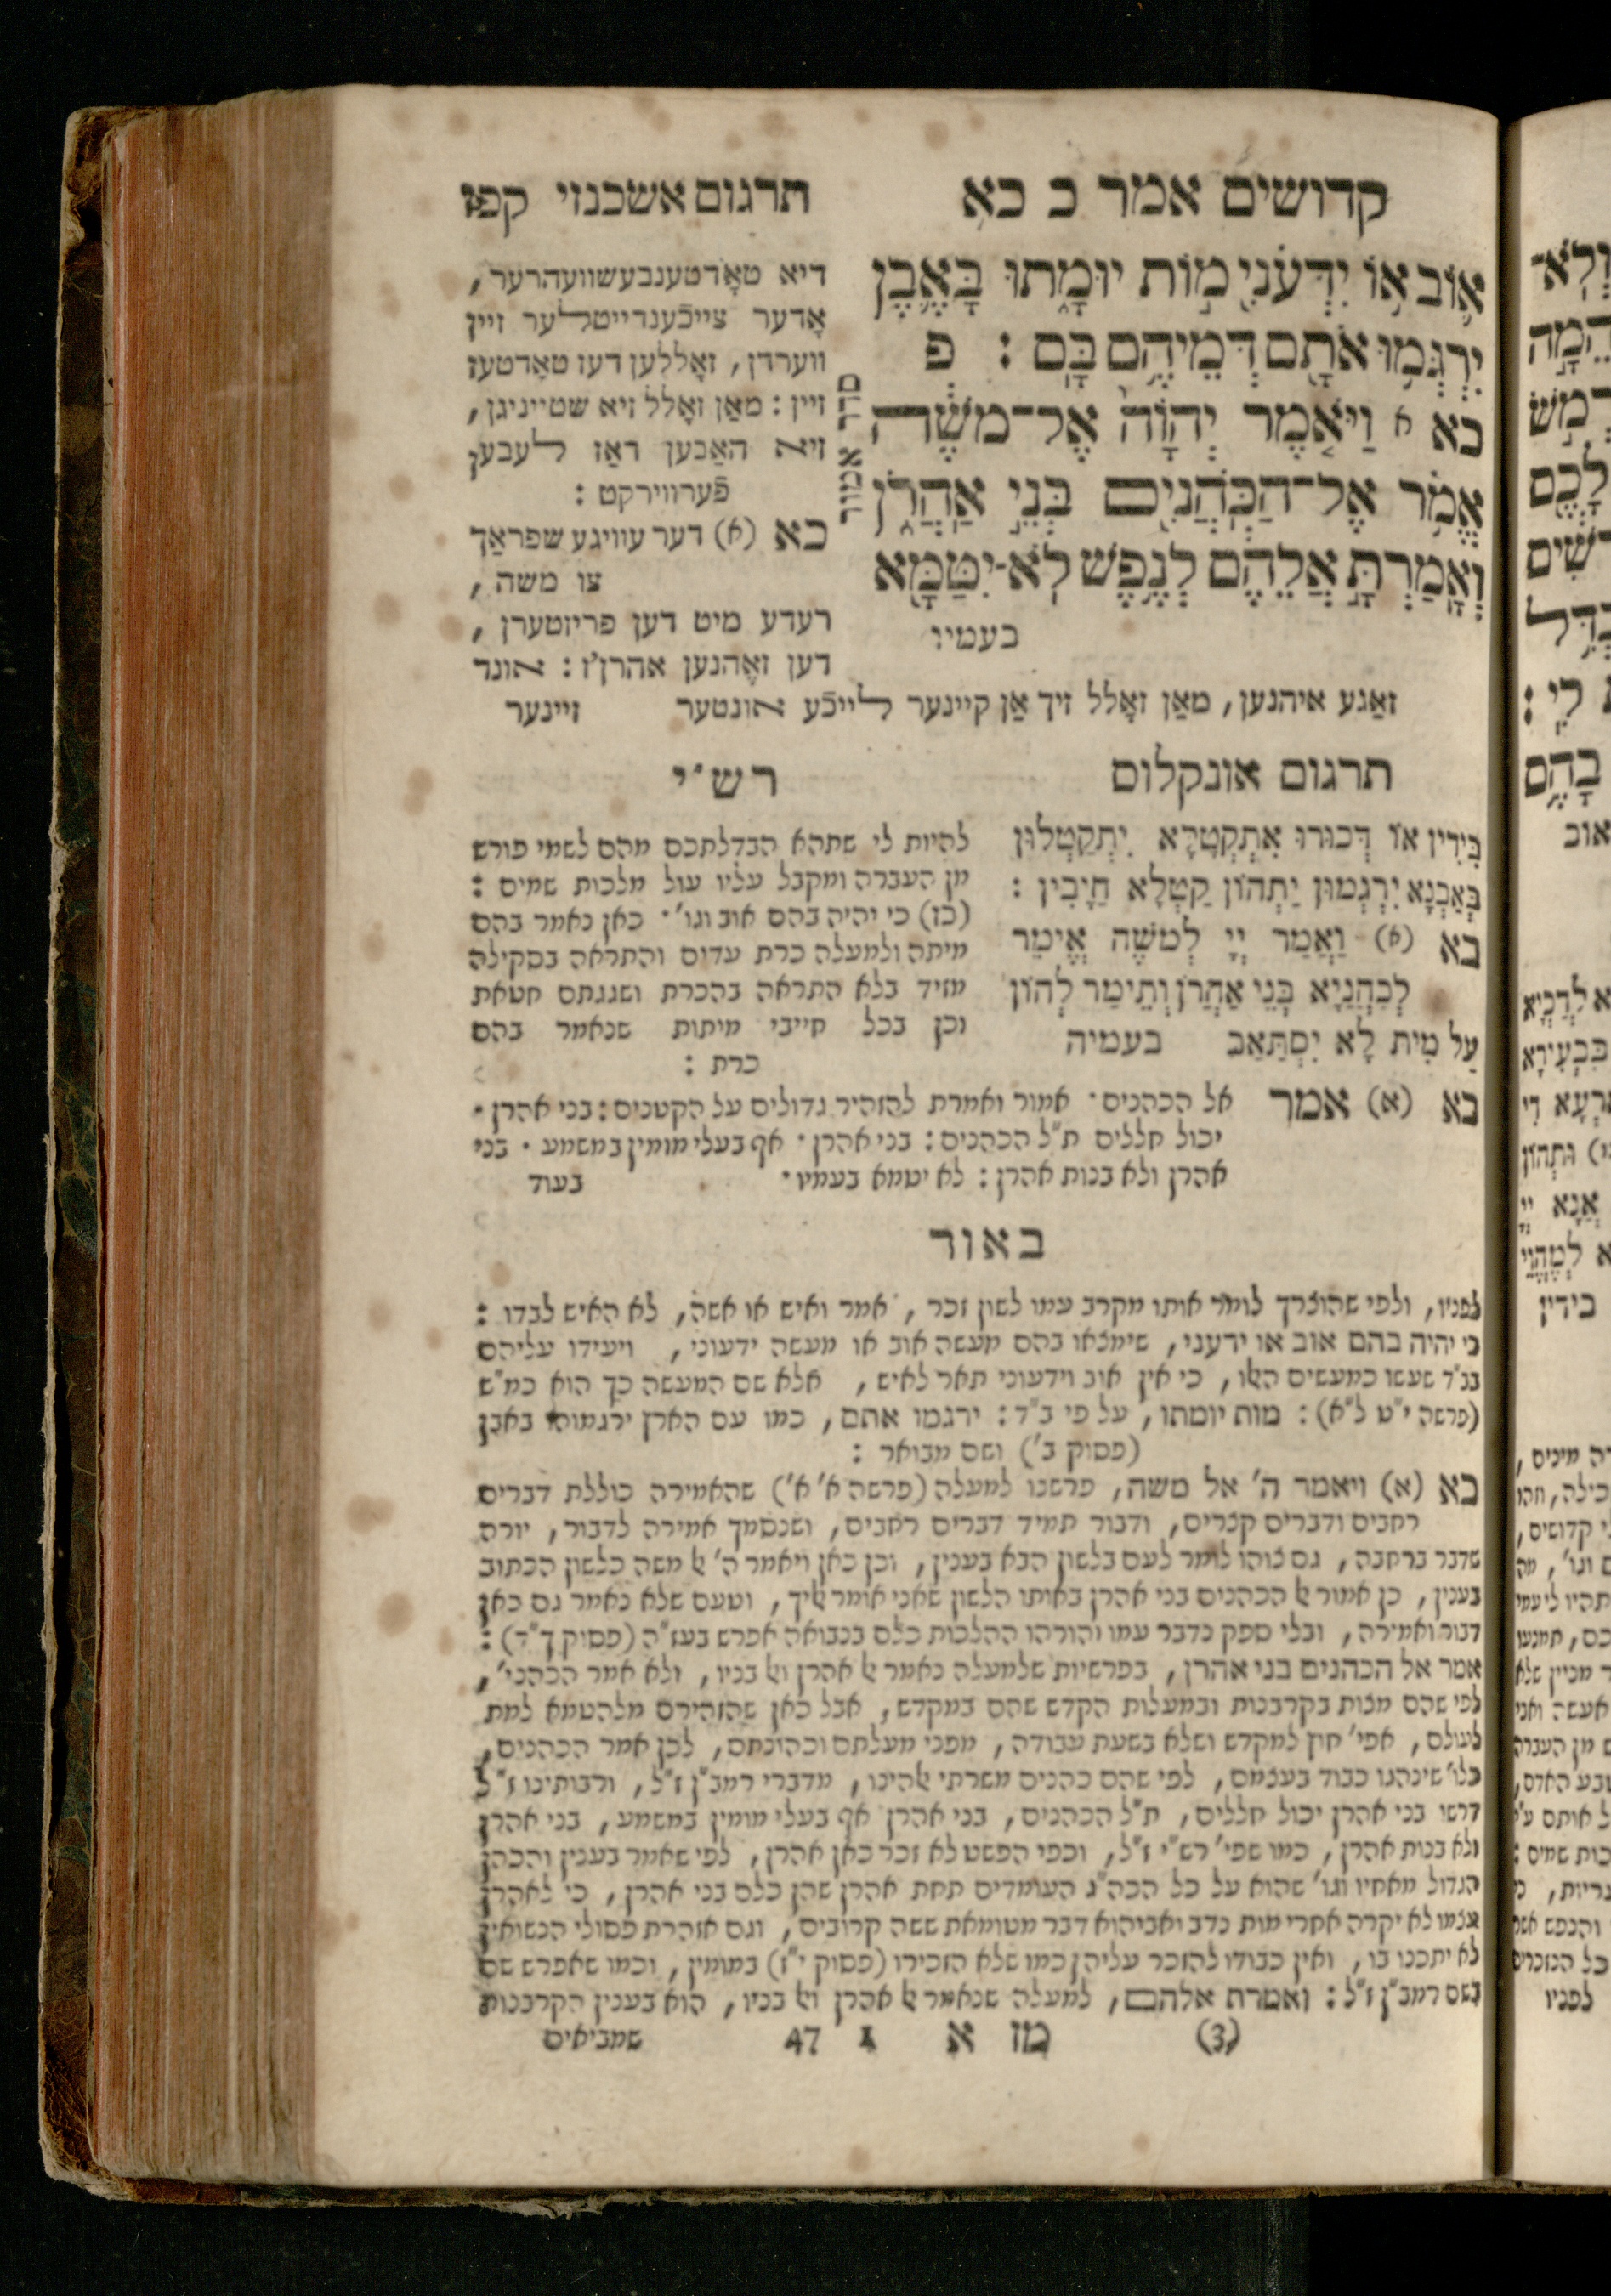 קדושים אמר כ כא
תרגום אשכנזי קפז
א֣וֹב א֥וֹ יִדְּעֹנִ֖י מ֣וֹת יוּמָ֑תוּ בָּאֶ֛בֶן
יִרְגְּמ֥וּ אֹתָ֖ם דְּמֵיהֶ֥ם בָּֽם : פ
כא א וַיֹּ֤אמֶר יְהוָֹה֙ אֶל־מֹשֶׁ֔ה
אֱמֹ֥ר אֶל־הַכֹּהֲנִ֖ים בְּנֵ֣י אַהֲרֹ֑ן
וְאָמַרְתָּ֣ אֲלֵהֶ֔ם לְנֶ֥פֶשׁ לֹֽא־יִטַּמָּ֖א
בעמיו
סדר אמור
דיא טאָדטענבעשוועהרער,
אָדער צייכֿענדייטללער זיין
ווערדן, זאָללען דעז טאָדטעז
זיין : מאַן זאָלל זיא שטייניגן,
זיא האַבען דאַז לעבען
פֿערווירקט :
כא (א) דער עוויגע שפראַך
צו משה,
רעדע מיט דען פריזטערן,
דען זאֶהנען אהרן'ז : אונד
זאַגע איהנען, מאַן זאָלל זיך אַן קיינער לייכֿע אונטער זיינער
תרגום אונקלוס
בִּידִין אוֹ דְּכוּרוּ אִתְקְטָלָא יִתְקַטְלוּן
בְּאַבְנָא יִרְגְמוּן יַתְהוֹן קַטְלָא חַיָבִין :
כא (א) וַאֲמַר יְיָ לְמֹשֶׁה אֱימַר
לְכַהֲנַיָא בְּנֵי אַהֲרֹן וְתֵימַר לְהוֹן
עַל מִית לָא יִסְתַּאַב בעמיה
רש"י
להיות לי שתהא הבדלתכם מהם לשמי פורש
מן העברה ומקבל עליו עול מלכות שמים :
(כז) כי יהיה בהם אוב וגו'. כאן נאמר בהם
מיתה ולמעלה כרת עדים והתראה בסקילה
מזיד בלא התראה בהכרת ושגגתם חטאת
וכן בכל חייבי מיתות שנאמר בהם
כרת :
כא (א) אמר אל הכהנים. אמור ואמרת להזהיר גדולים על הקטנים : בני אהרן.
יכול חללים ת"ל הכהנים : בני אהרן. אף בעלי מומין במשמע. בני
אהרן ולא בנות אהרן : לא יטמא בעמיו. בעוד
באור
לפניו, ולפי שהוצרך לומר אותו מקרב עמו לשון זכר, אמר ואיש או אשה, לא האיש לבדו :
כי יהיה בהם אוב או ידעני, שימצאו בהם מעשה אוב או מעשה ידעוני, ויעידו עליהם
בב"ד שעשו כמעשים האלו, כי אין אוב וידעוני תאר לאיש, אלא שם המעשה כך הוא כמ"ש
(פרשה י"ט ל"א) : מות יומתו, על פי ב"ד : ירגמו אתם, כמו עם הארץ ירגמוהו באבן
(פסוק ב') ושם מבואר :
כא (א) ויאמר ה' אל משה, פרשנו למעלה (פרשה א' א') שהאמירה כוללת דברים
רחבים ודברים קצרים, ודבור תמיד דברים רחבים, ושנסמך אמירה לדבור, יורה
שדבר ברחבה, גם צוהו לומר לעם בלשון הבא בענין, וכן כאן ויאמר ה' אל משה כלשון הכתוב
בענין, כן אמור אל הכהנים בני אהרן באותו הלשון שאני אומר אליך, וטעם שלא נאמר גם כאן
דבור ואמירה, ובלי ספק נדבר עמו והורהו ההלכות כלם בנבואה אפרש בעז"ה (פסוק ך"ד) :
אמר אל הכהנים בני אהרן, בפרשיות שלמעלה נאמר אל אהרן ואל בניו, ולא אמר הכהני',
לפי שהם מצות בקרבנות ובמעלות הקדש שהם במקדש, אבל כאן שהזהירם מלהטמא למת
לעולם, אפי' חוץ למקדש ושלא בשעת עבודה, מפני מעלתם וכהונתם, לכן אמר הכהנים,
כלו' שינהגו כבוד בעצמם, לפי שהם כהנים משרתי אלהינו, מדברי רמב"ן ז"ל, ורבותינו ז"ל
דרשו בני אהרן יכול חללים, ת"ל הכהנים, בני אהרן אף בעלי מומין במשמע, בני אהרן
ולא בנות אהרן, כמו שפי' רש"י ז"ל, וכפי הפשט לא זכר כאן אהרן, לפי שאמר בענין והכהן
הגדול מאחיו וגו' שהוא על כל הכה"ג העומדים תחת אהרן שהן כלם בני אהרן, כי לאהרן
עצמו לא יקרה אחרי מות נדב ואביהוא דבר מטומאת ששה קרובים, וגם אזהרת פסולי הנשואין
לא יתכנו בו, ואין כבודו להזכר עליהן כמו שלא הזכירו (פסוק י"ז) במומין, וכמו שאפרש שם
בשם רמב"ן ז"ל : ואמרת אלהם, למעלה שנאמר אל אהרן ואל בניו, הוא בענין הקרבנות
(3) מז א 47 שמביאים